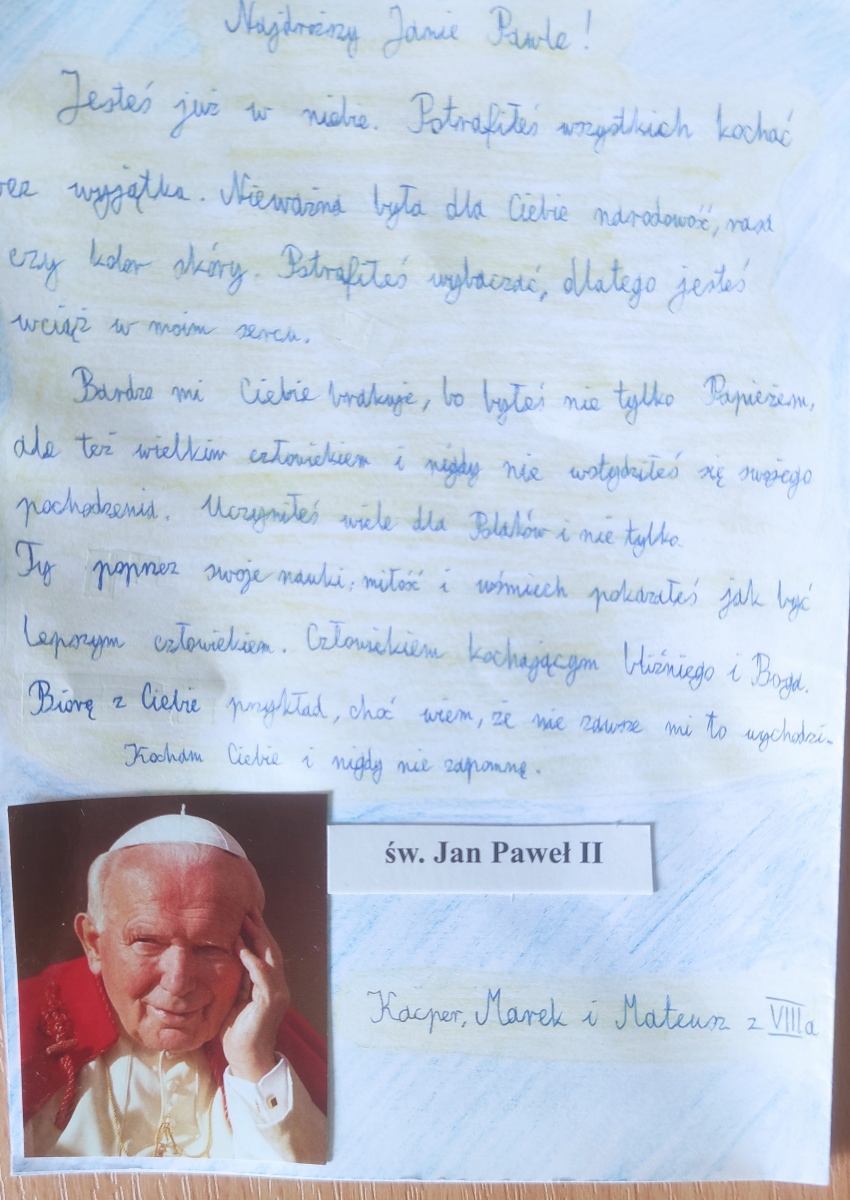 Najdroższy Janie Pawle!
Jesteś już w niebie. Potrafiłeś wszystkich kochać
bez wyjątku. Nieważna była dla Ciebie narodowość, rasa
czy kolor skóry. Potrafiłeś wybaczać, dlatego jesteś
wciąż w moim sercu.
Bardzo mi Ciebie brakuje, bo byłeś nie tylko Papieżem,
ale też wielkim człowiekiem i nigdy nie wstydziłeś się swojego
pochodzenia. Uczyniłeś wiele dla Polaków i nie tylko.
Ty poprzez swoje nauki, miłość i uśmiech pokazałeś jak być
lepszym człowiekiem. Człowiekiem kochającym bliźniego i Boga.
Biorę z Ciebie przykład, choć wiem, że nie zawsze mi to wychodzi.
Kocham Ciebie i nigdy nie zapomnę.
św. Jan Paweł II
Kacper, Marek i Mateusz z VIIIa